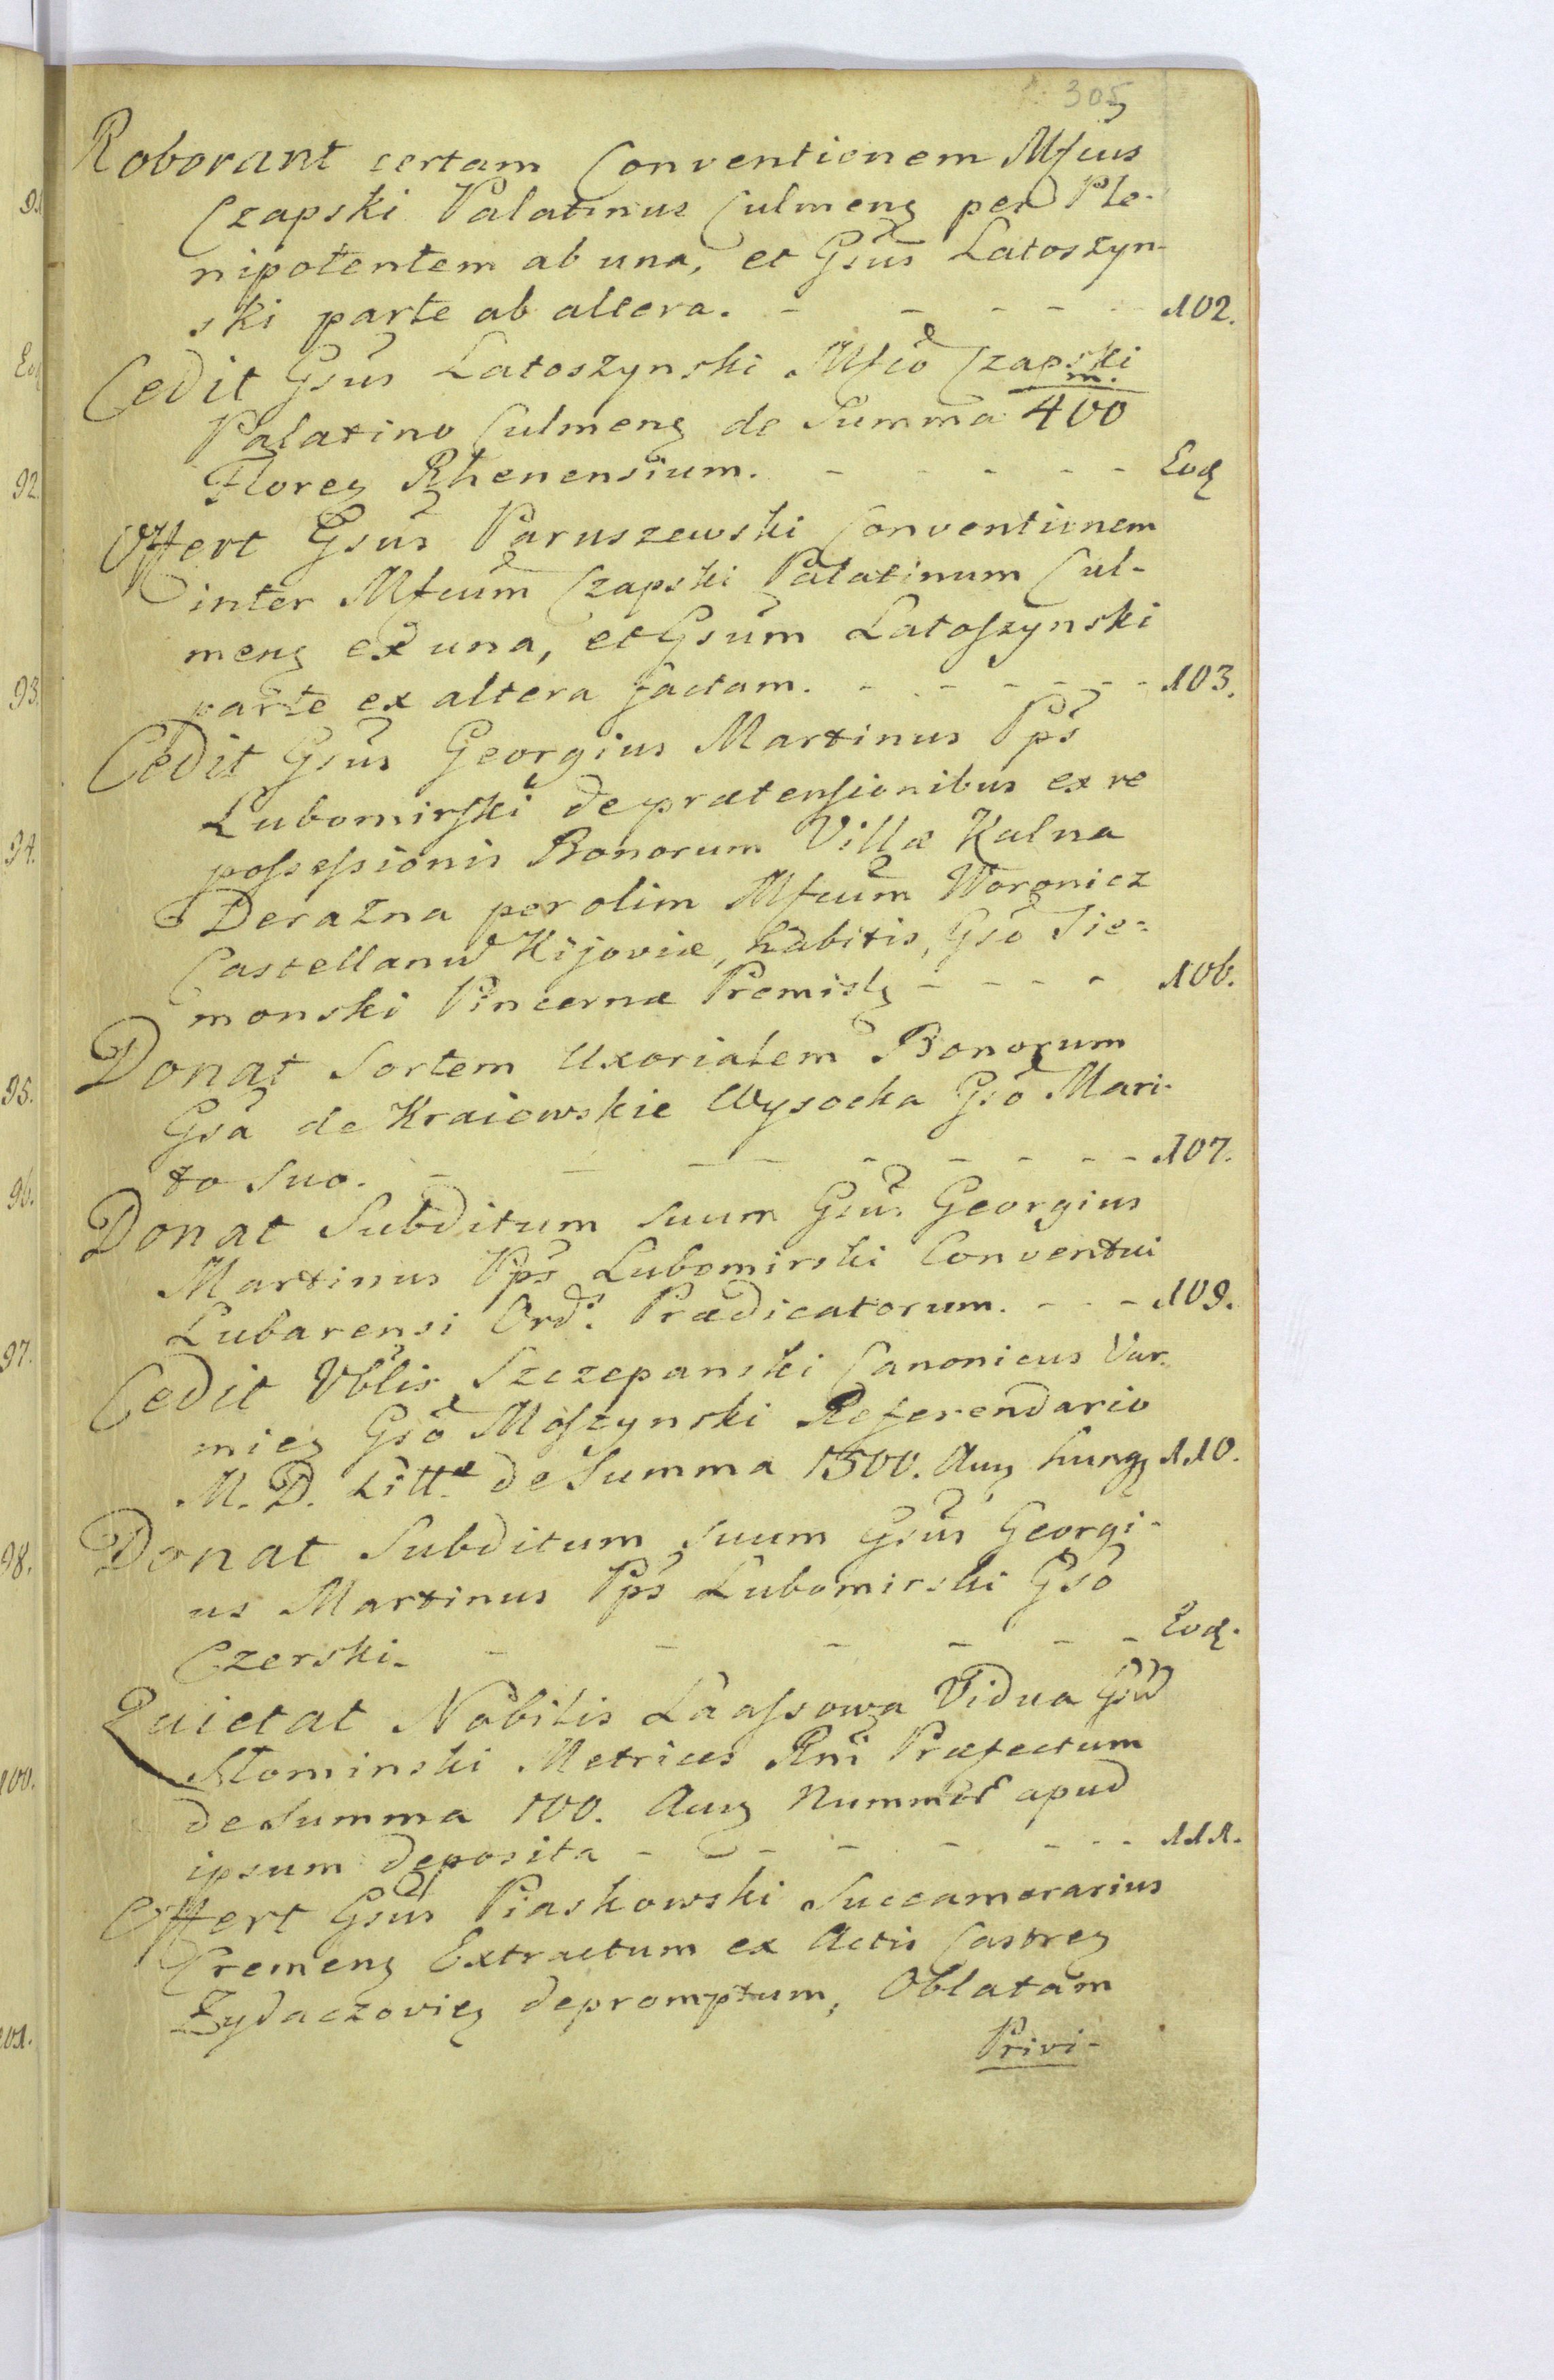 305
Roborant certam Conventionem Mfcus
Czapski Palatinus Culmens per Ple-
nipotentem ab una, et Gsus Latoszyn-
ski parte ab altera. - - - - - 102.
Cedit Gsus Latoszynski Mfco Czapski
Palatino Culmens de Summa 400 m.
Floren Rhenensium. - - - - - Eod
Offert Gsus Paruszewski Conventionem
inter Mfcum Czapski Palatinum Cul-
mens ex una, et Gsum Latoszynski
parte ex altera factam. - - - - - - 103.
Cedit Gsus Georgius Martinus Pps
Lubomirski de prætensionibus ex re
possessionis Bonorum Villæ Kalna
Derazna per olim Mfcum Woronicz
Castellanum Kijoviæ, habitis, Gso Sie-
monski Pincernæ Premisl - - - - 106.
Donat Sortem Uxorialem Bonorum
Gsa de Kraiewskie Wysocka Gso Mari-
to Suo. - - - - - - - - 107.
Donat Subditum suum Gsus Georgius
Martinus Pps Lubomirski Conventui
Lubarensi Ord: Prædicatorum. - - - 109.
Cedit Vblis Szczepanski Canonicus Var-
mien Gso Moszynski Referendario
M. D. Litt. de Summa 1500. Aur hung 110.
Donat Subditum suum Gsus Georgi-
us Martinus Pps Lubomirski Gso
Czerski. - - - - - - Eod.
Quietat Nobilis Laassowa Vidua Gsum
Slominski Metrices Rni Præfectum
de Summa 100. Aur Nummor apud
ipsum deposita - - - - - - - 111.
Offert Gsus Piaskowski Succamerarius
Cremens Extractum ex Actis Castren
Zydaczovien depromptum, Oblatam
Privi-
91
Eod
92.
93.
94.
95.
96.
97.
98.
100.
101.